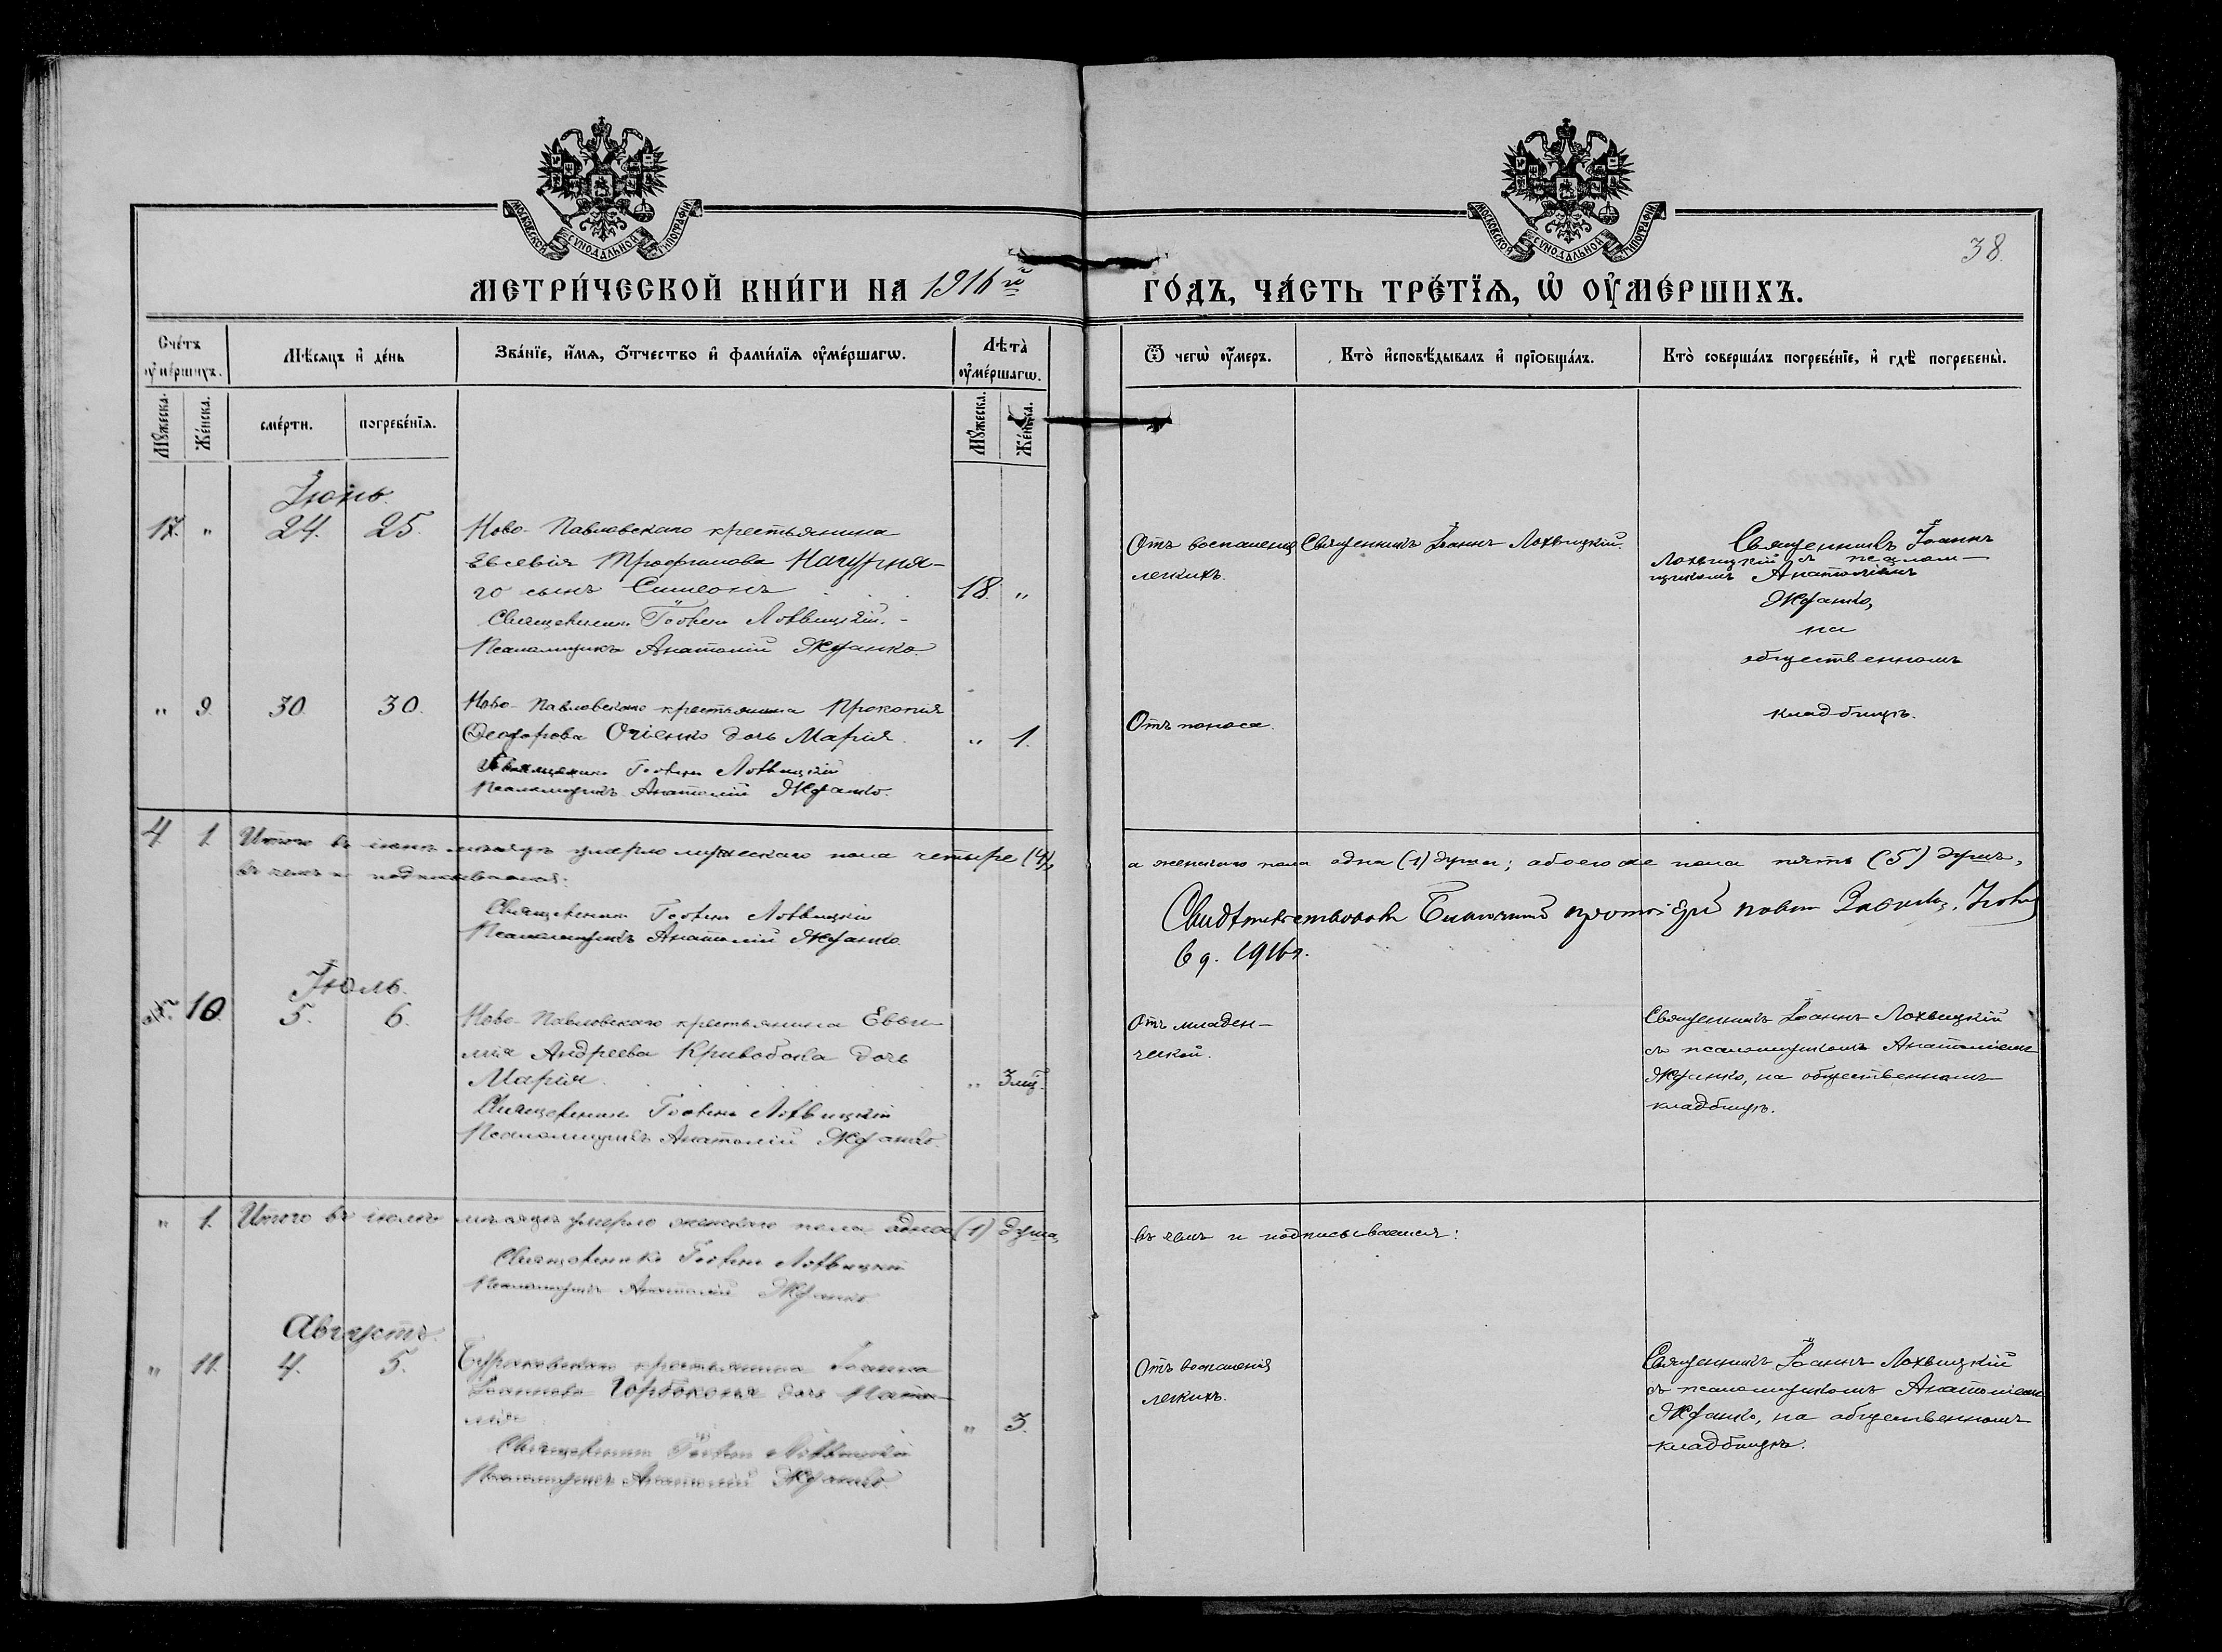 МОСКОВСКОЙ СѴНОДАЛЬНОЙ ТИПОГРАФІИ
МОСКОВСКОЙ СѴНОДАЛЬНОЙ ТИПОГРАФІИ
38.
МЕТРИ́ЧЕСКОЙ КНИ́ГИ НА 1916й ГО́ДЪ, ЧА́СТЬ ТРЕ́ТЇѦ, Ѡ҆ ОУ҆МЕ́РШИХЪ.
Сче́тъ оу҆ме́ршихъ.
Мѣ́сяцъ и҆ де́нь
Зва́нїе, и҆́мѧ, ѻ҆́тчество и҆ фами́лїѧ оу҆ме́ршагѡ.
Лѣ́та̀ оу҆ме́ршагѡ.
Ѿ чегѡ̀ оу҆́меръ.
Кто̀ и҆сповѣ́дывалъ и҆ прїѡбща́лъ.
Кто̀ соверша́лъ погребе́нїе, и҆ гдѣ̀ погребены̀.
Мꙋ́жеска. Же́нска. сме́рти. погребе́нїѧ. Мꙋ́жеска. Же́нска.
Іюнь.
17. " 24. 25. Ново-Павловскаго крестьянина
Евсевія Трофимова
го сынъ Симеонъ 18. "
Священникъ Іоаннъ Лохвицкій.
Псаломщикъ Анатолій Жданко.
Отъ воспаленія
легкихъ.
Священникъ Іоаннъ Лохвицкій.
Священникъ Іоаннъ
Лохвицкій съ псалом-
щикомъ Анатоліемъ
Жданко,
на
общественномъ
кладбищѣ.
" 9. 30. 30. Ново-Павловскаго крестьянина Прокопія
Ѳеодорова Очіенко дочь Марія. " 1.
Священникъ Іоаннъ Лохвицкій
Псаломщикъ Анатолій Жданко.
Отъ поноса.
4 1. Итого въ іюнѣ мѣсяцѣ умерло мужескаго пола четыре (4), а женскаго пола одна (1) душа; обоего же пола пять (5) душъ,
въ чемъ и подписываемся:
Священникъ Іоаннъ Лохвицкій
Псаломщикъ Анатолій Жданко.
Свидѣтельствовалъ Благочинный протоіерей
6 д. 1916 г.
Іюль.
10. 5. 6. Ново-Павловскаго крестьянина Евѳи-
мія Андреева Кривобока дочь
Марія. " 3 мѣ.
Священникъ Іоаннъ Лохвицкій
Псаломщикъ Анатолій Жданко.
Отъ младен-
ческой.
Священникъ Іоаннъ Лохвицкій
съ псаломщикомъ Анатоліемъ
Жданко, на общественномъ
кладбищѣ.
" 1. Итого въ іюлѣ мѣсяцѣ умерло женскаго пола одна (1) душа, въ чемъ и подписываемся:
Священникъ Іоаннъ Лохвицкій
Псаломщикъ Анатолій Жданко
Августъ.
" 11. 4. 5. крестьянина Іоанна
Іоаннова Горбоконя дочь Ната-
лія " 3.
Священникъ Іоаннъ Лохвицкій
Псаломщикъ Анатолій Жданко.
Отъ воспаленія
легкихъ.
Священникъ Іоаннъ Лохвицкій
съ псаломщикомъ Анатоліемъ
Жданко, на общественномъ
кладбищѣ.